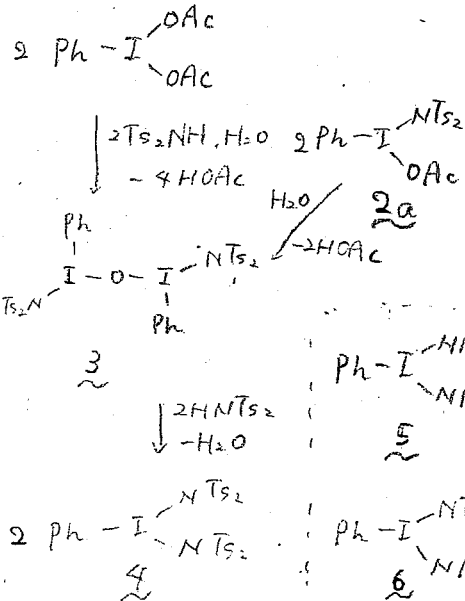 2 Ph-I
OAc
OAc
2Ts₂NH, H₂O
- 4HOAc
2Ph-I
NTs₂
OAc
2a
H₂O
-2HOAc
Ph
I-O-I
NTs₂
Ts₂N
Ph
3
2HNTs₂
-H₂O
Ph-I
5
2 Ph-I
NTs₂
NTs₂
4
Ph-I
6